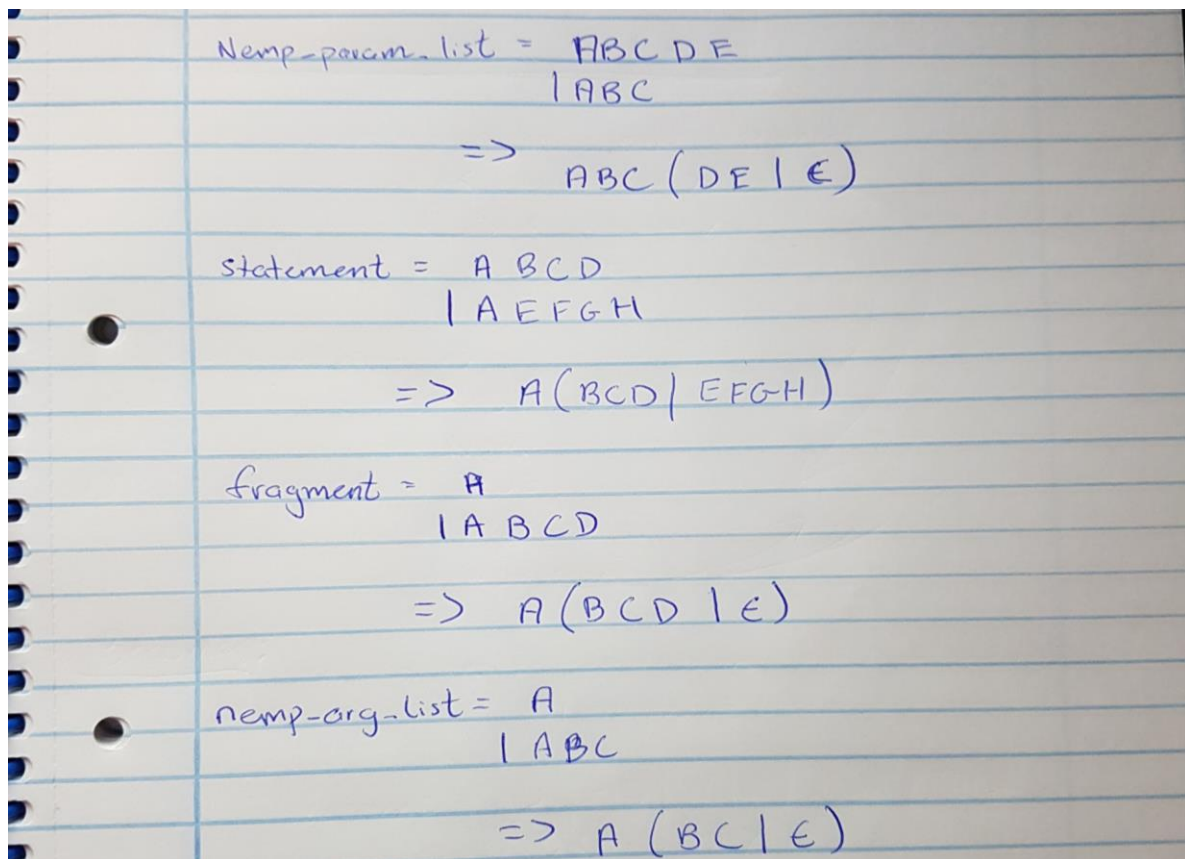 Nemp-param-list = ABCDE
| ABC
=> ABC ( DE | ϵ )
statement = A B C D
| A E F F G H
=> A ( BCD | EFGH )
fragment = A
| A B C D
=> A ( B C D | ϵ )
nemp-arg-list = A
| ABC
=> A ( BC | ϵ )